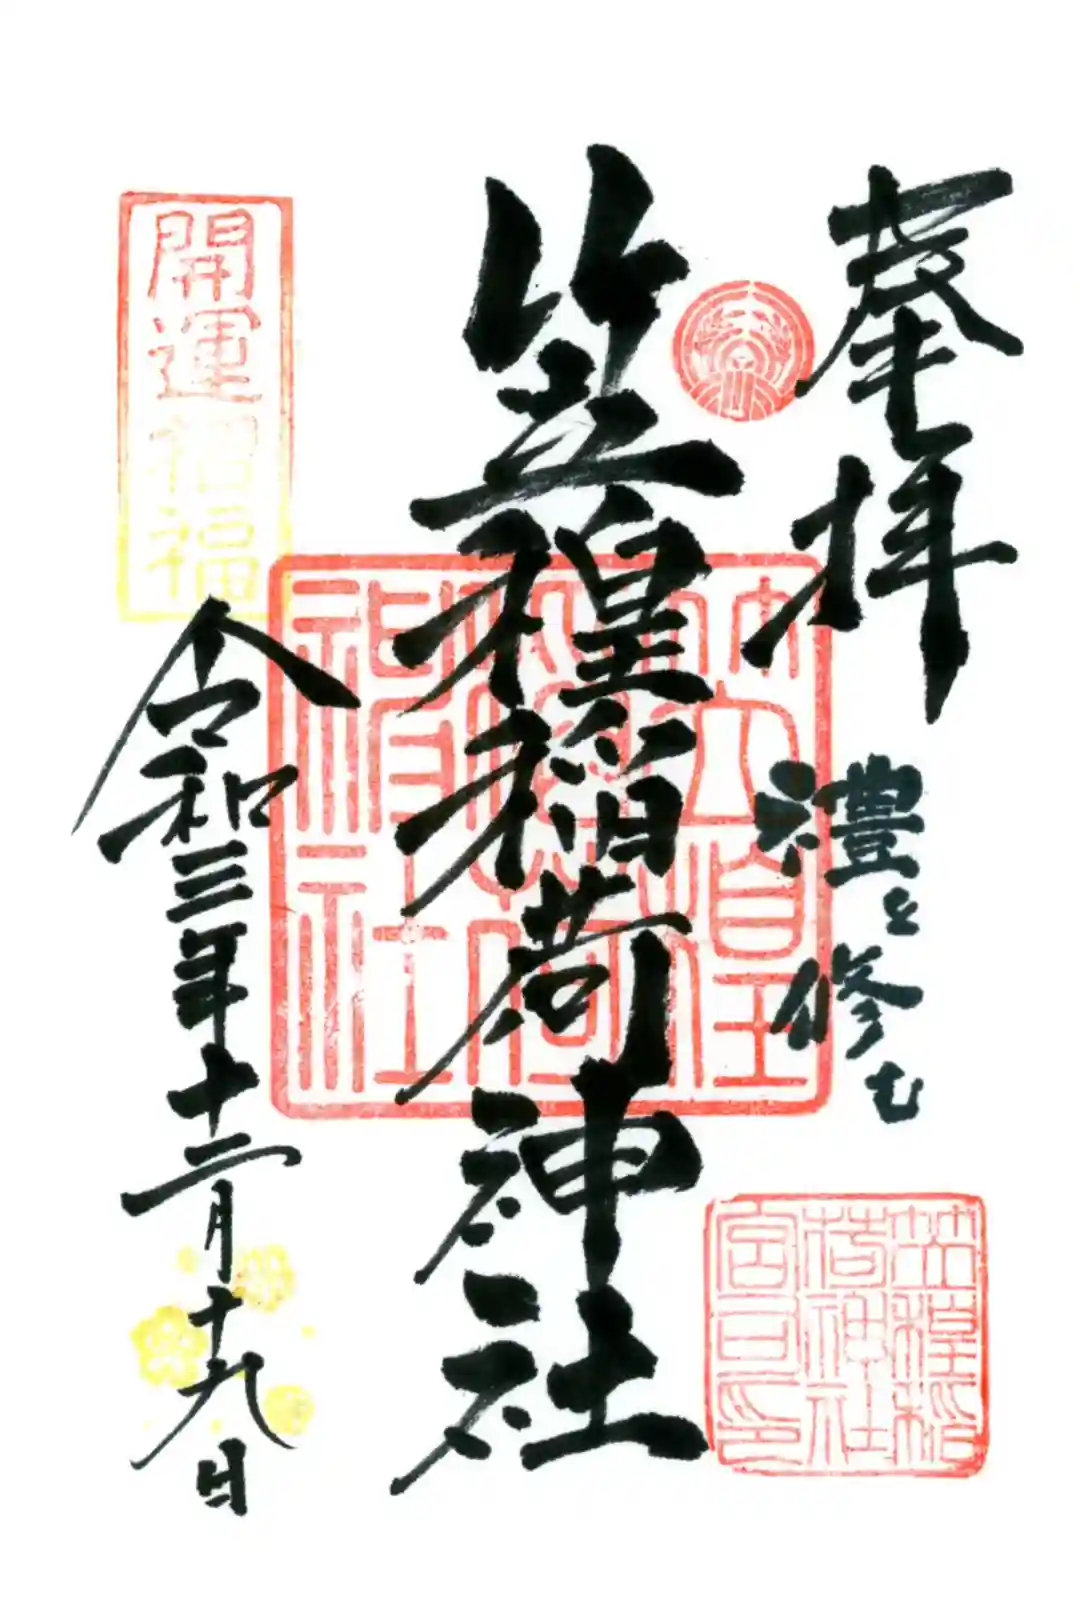 奉拝
禮を修む
笠䅣稲
荷神社
宮司印
笠䅣稲荷神社
笠䅣
稲荷
神社
開運招福
令和三年十二月十九日